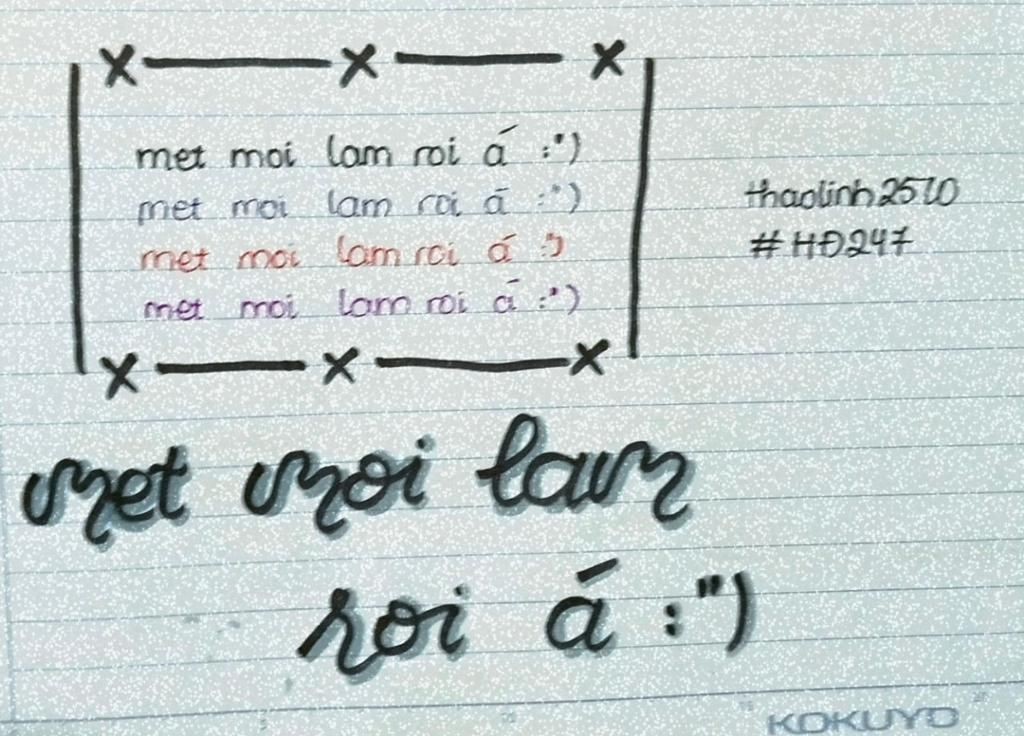 met moi lam roi á :")
met moi lam roi á :")
met moi lam roi á :")
met moi lam roi á :")
thaolinh2510
#HĐ247
met moi lam
roi á :")
KOKUYO